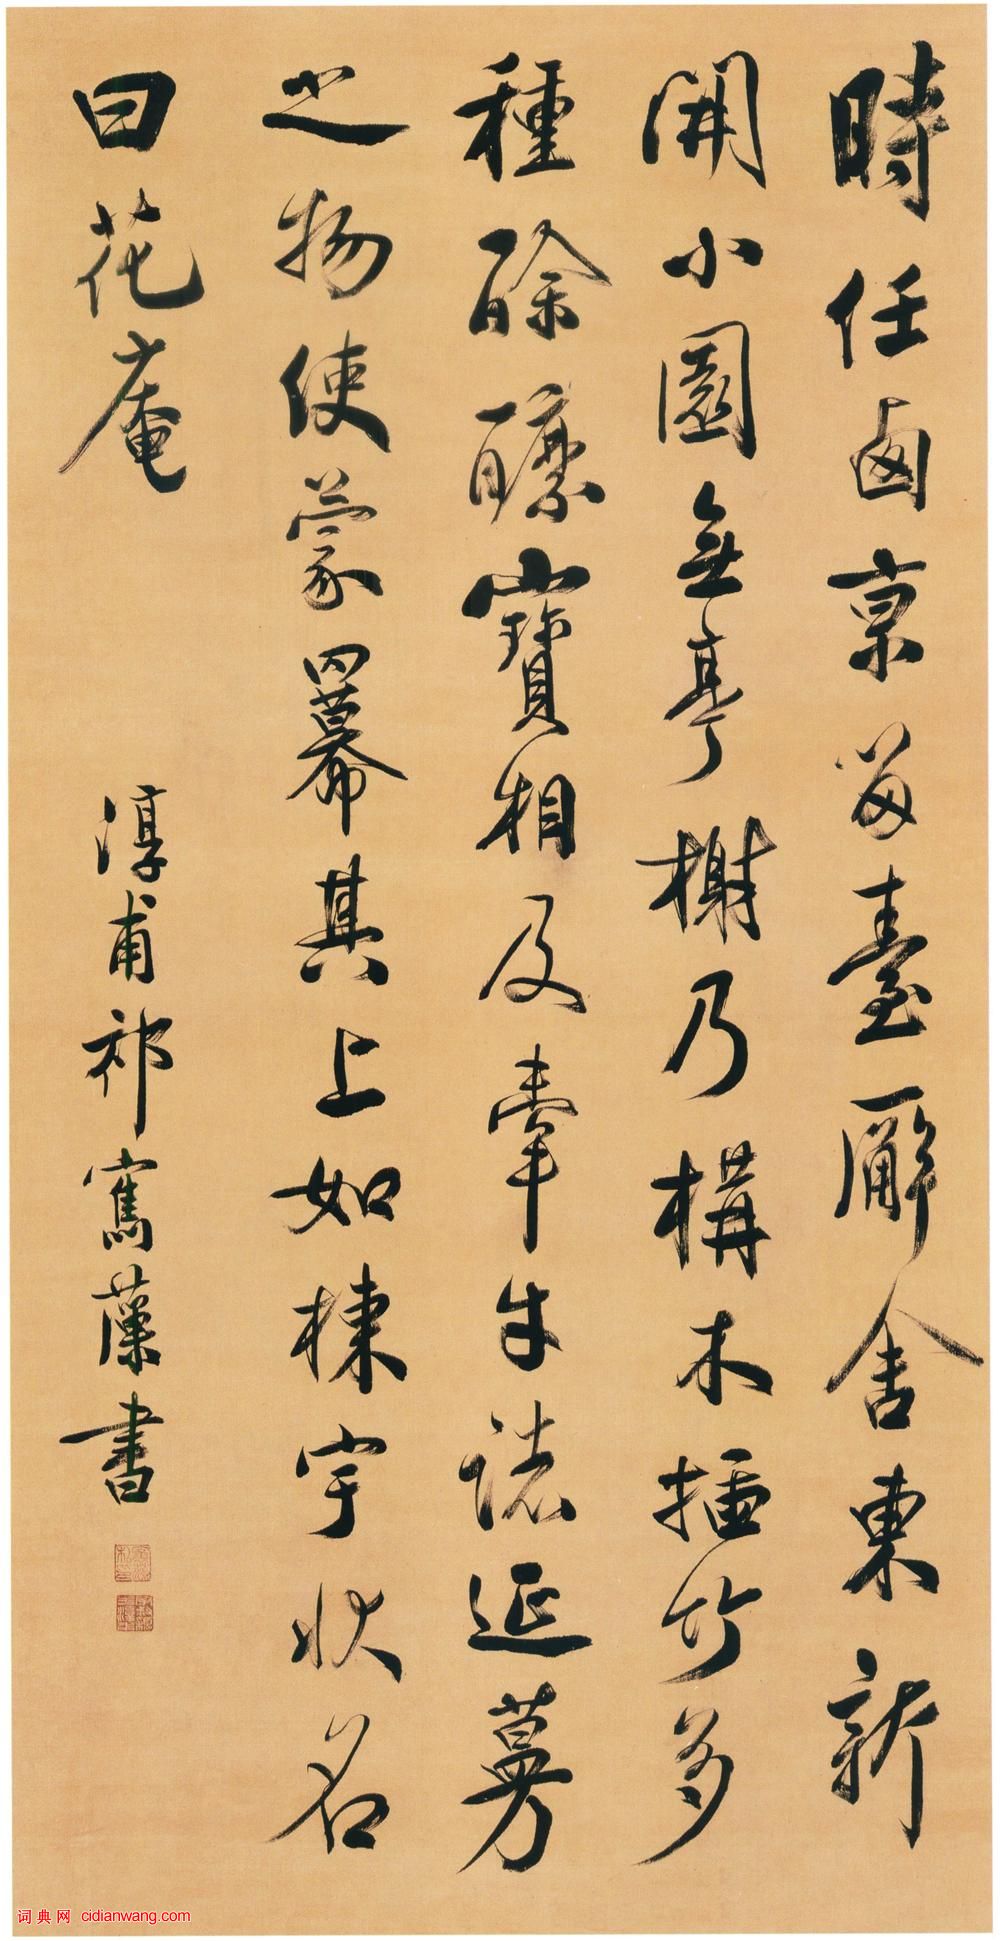 時任西京留臺廨舍東新
開小園無亭榭乃構木插竹多
種酴醿寶相及牽牛諸延蔓
之物使蒙羃其上如棟宇狀名
曰花庵
淳甫祁寯藻書
词典网 cidianwang.com